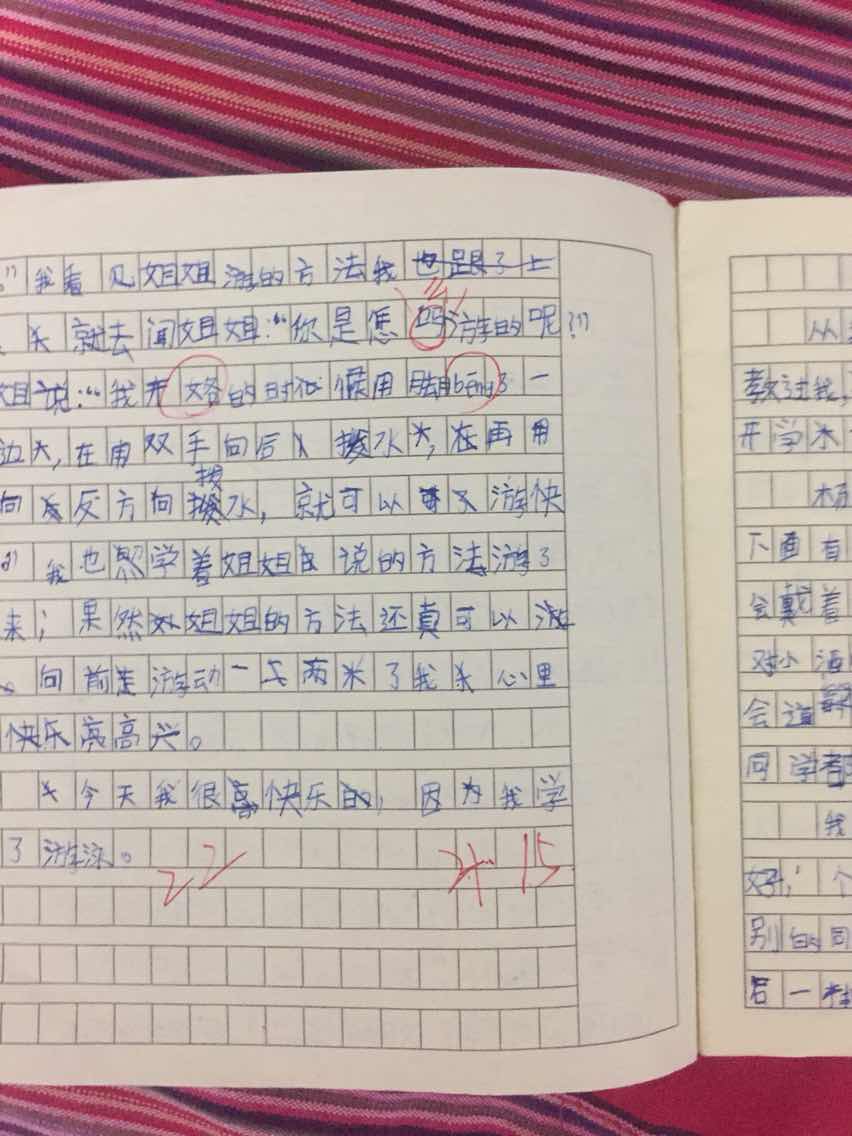 。”我看见姐姐游的方法我也跟了上
就去闻姐姐：“你是怎吗游的呢？”
姐说：“我的时候用脚bēng了一
边，在用双手向后拨水，在再用
向反方向拨水，就可以游快
”我也学着姐姐说的方法游了
来；果然姐姐的方法还真可以游
向前游动一两米了我心里
快乐高兴。
今天我很快乐，因为我学
了游泳。
22
4.15
从
教过我，
开学
杨
下面有
会戴着
对小
会道
同学都
我
好，个
别的同
后一